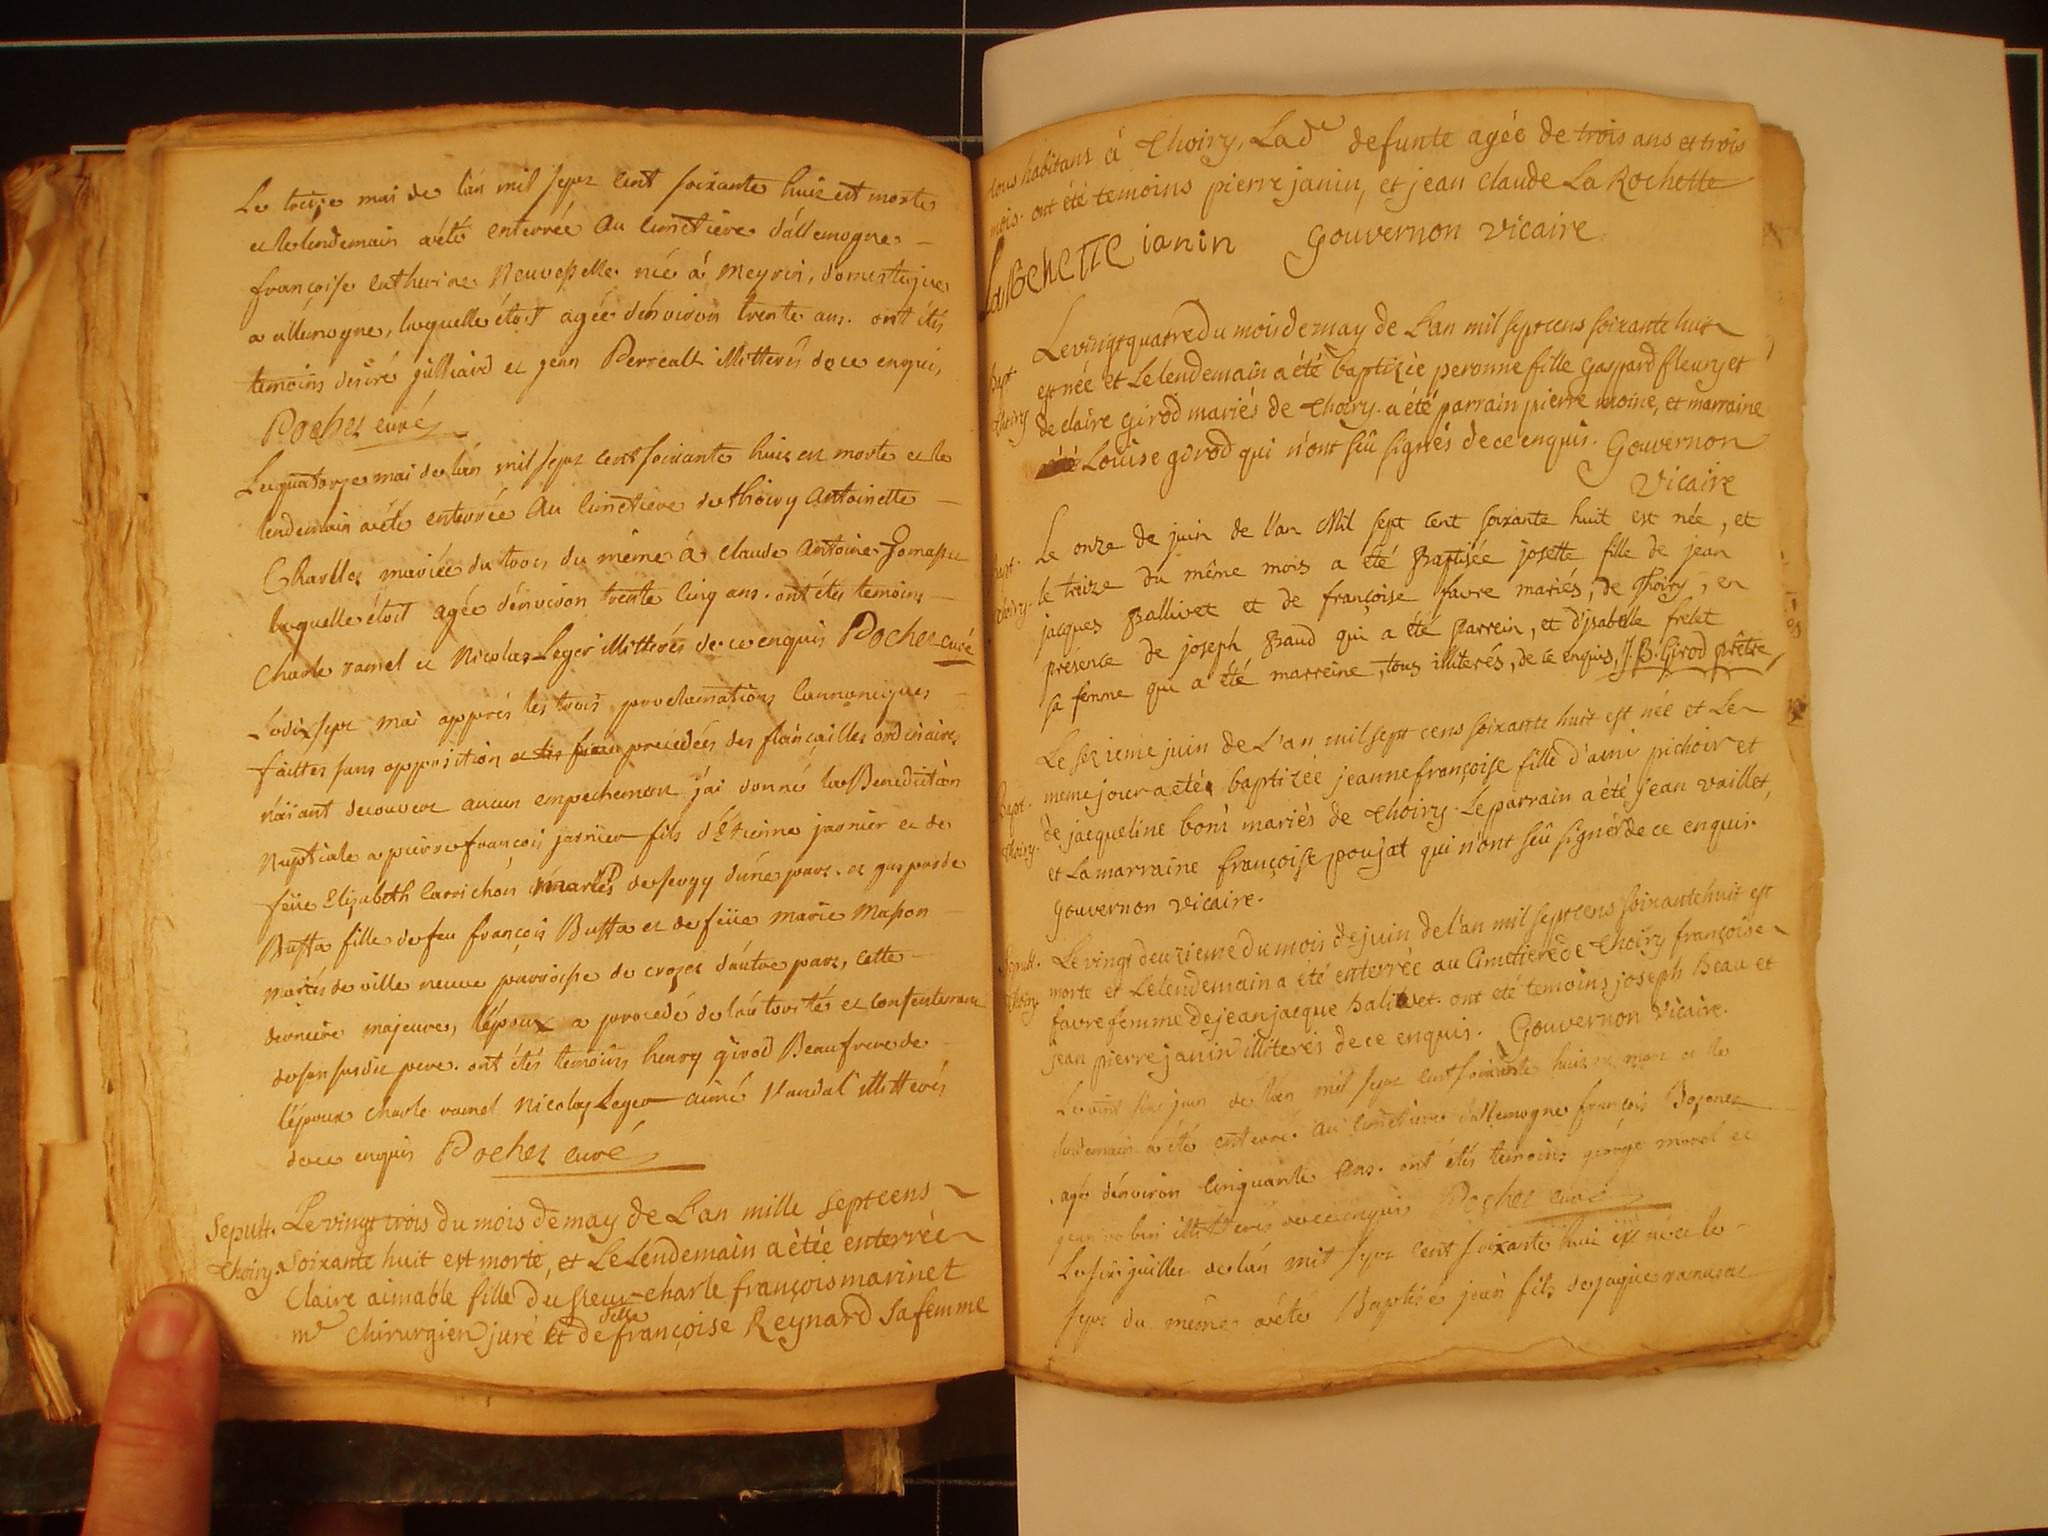 Le treize mai de l'án mil sept cent soixante huit est morte
et le lendemain a été enterrée au cimetiere d'allemogne
françoise catherine Neuvesselle née à Meyrin, domestique
a allemogne, laquelle étoit agée d'énviron trente ans. ont étés
temoins désiré gilliard et jean Perrealt illitterés de ce enquis,
Pochet curé
Le quatorze mai de l'án mil sept cent soixante huit est morte et le
lendemain a été enterrée au cimetiere de thoiry Antoinette
mariée du trois du même à claude Antoine
laquelle étoit agée d'énviron trente cinq ans. ont étés temoins
Charle ramel et Nicolas Leger illitterés de ce enquis Pochet curé
Le dix sept mai apprés les trois proclamations cannoniques
faittes sans opposition précédées des fiançailles ordinaires
n'aïant decouvert aucun empechement j'ai donné la Benediction
Nuptiale a pierre françois jasnier fils d'Etienne jasnier et de
feüe Elizabeth Carrichon mariés de sergy d'úne part. et gasparde
Buffa fille de feu françois Buffa et de feüe marie Masson
mariés de ville neuve parroisse de crozet d'aútre part, cette
derniere majeure, l'époux a procédé de l'aútorités et consentement
de son susdit pere. ont étés temoins henry girod Beaufrere de
l'époux charle ramel Nicolas Leger aimé Vandal illitterés
de ce enquis Pochet curé
Sepult. Le vingt trois du mois de may de L'an mille septcens
Thoiry. soixante huit est morte, et Le Lendemain a étée enterrée
Claire aimable fille du sieur charle françois marinet
me chirurgien juré et de delle françoise Reynard sa femme
tous habitans à Thoiry, Lade defunte agée de trois ans et trois
mois. ont été temoins pierre janin, et jean claude La Rochette
LaRochette ianin Gouvernon vicaire
Le vingt quatre du mois de may de L'an mil septcens soixante huit
Bapt. est née et Le lendemain a été baptizée peronne fille Gaspard fleury et
Thoiry de claire Girod mariés de Thoiry. a été parrain pierre moine, et marraine
été Louise girod qui n'ont sçû signés de ce enquis. Gouvernon
Vicaire
Le onze de juin de l'an Mil sept cent soixante huit est née, et
Bapt. le treize du même mois a été Baptisée josette fille de jean
Thoiry. jacques Ballivet et de françoise favre mariés, de Thoiry, en
présence de joseph Baud qui a été parrein, et d'jsabelle frelet
sa femme qui a été marreine, tous illiterés, de ce enquis, J. B. Girod prêtre
Le sezieme juin de L'an mil sept cens soixante huit est née et Le
Bapt. meme jour a eté baptizée jeanne françoise fille d'ami pichoir et
Thoiry. de jacqueline boni mariés de Thoiry. Le parrain a été jean vaillet,
et La marraine françoise poujat qui n'ont sçû signér de ce enquis.
Gouvernon vicaire.
Sepult. Le vingt deuzieme du mois de juin de l'an mil sept cens soixante huit est
Thoiry morte et Le lendemain a été enterrée au Cimetiere de Thoiry françoise
favre femme de jean jacque balivet. ont été temoins joseph beau et
jean pierre janin illiterés de ce enquis. Gouvernon Vicaire.
Le vint juin de l'an mil sept cent soixante huit est mort et le
lendemain a été enterré au cimetiere d'allemogne françois
agé d'énviron cinquante ans. ont étés temoins george morel et
jean illitterés de ce enquis Pochet curé
Le six juillet de l'án mil sept cent soixante huit est né et le
sept du même a été Baptisé jean fils de jaque ramusat